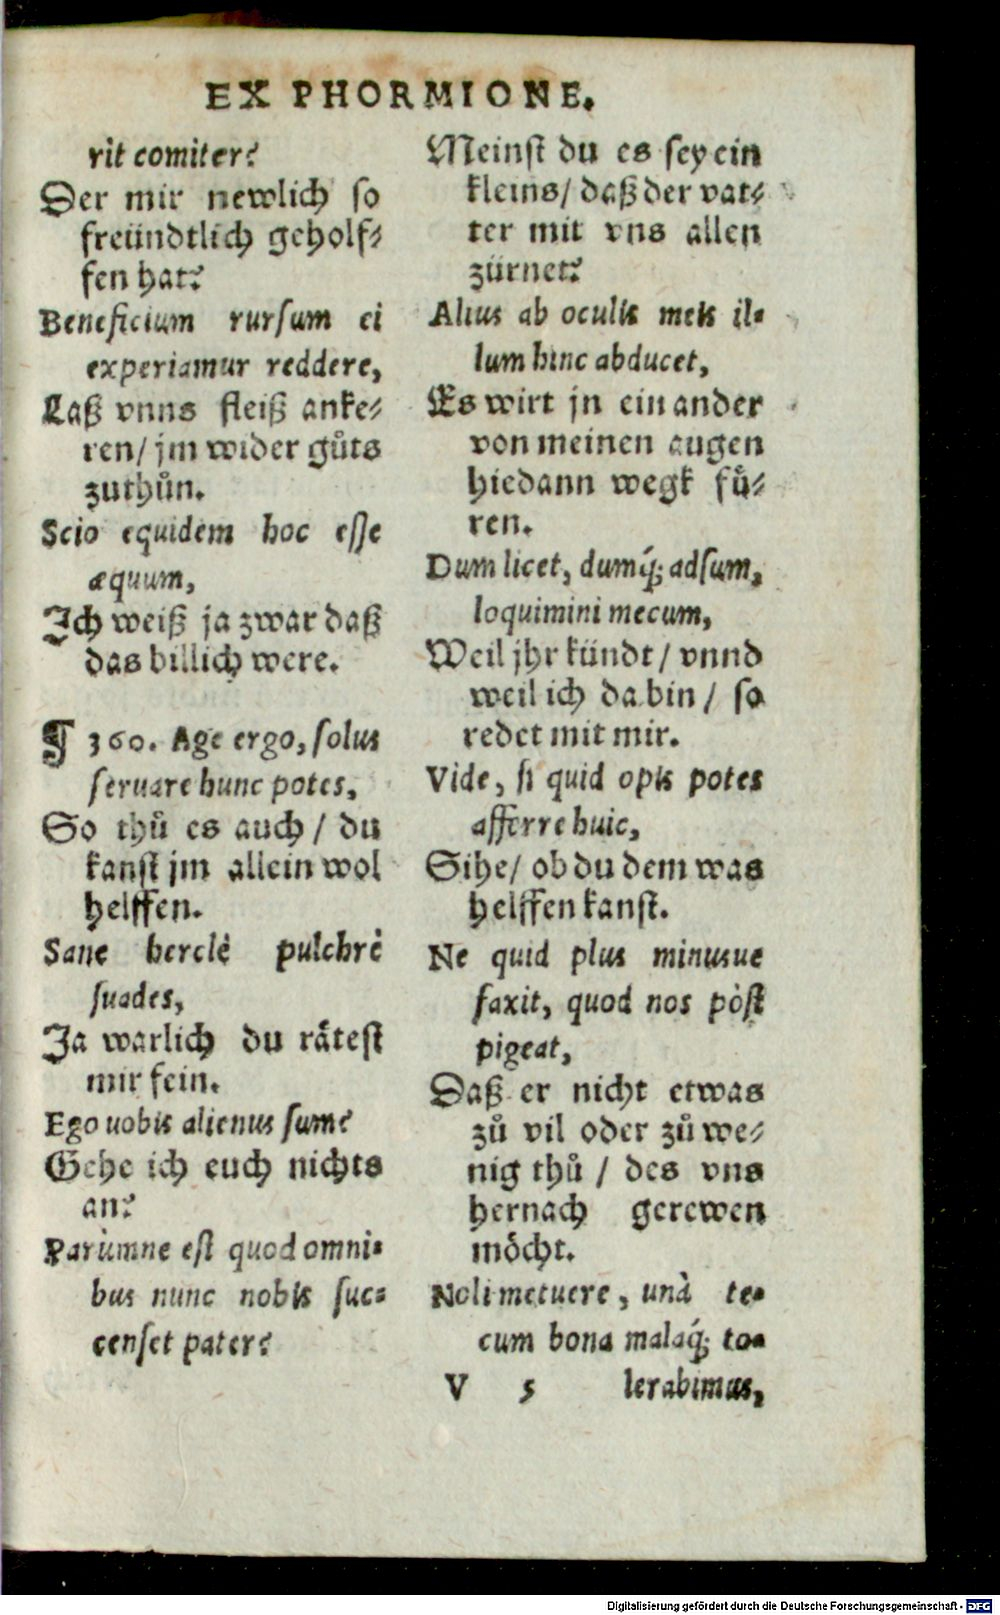 EX PHORMIONE.
rit comiter?
Der mir newlich so
freündtlich geholf⸗
fen hat?
Beneficium rursum ei
experiamur reddere,
Laß vnns fleiß anke⸗
ren/ jm wider gůts
zuthůn.
Scio equidem hoc esse
æquum,
Ich weiß ja zwar daß
das billich were.
¶ 360. Age ergo, solus
seruare hunc potes,
So thů es auch / du
kanst jm allein wol
helffen.
Sane herclè pulchrè
suades,
Ja warlich du rätest
mir fein.
Ego uobis alienus sum?
Gehe ich euch nichts
an?
Parùmne est quod omni⸗
bus nunc nobis suc⸗
censet pater?
Meinst du es sey ein
kleins/ daß der vat⸗
ter mit vns allen
zürnet?
Alius ab oculis meis il⸗
lum hinc abducet,
Es wirt jn ein ander
von meinen augen
hiedann wegk fů⸗
ren.
Dum licet, dumq́; adsum,
loquimini mecum,
Weil jhr kündt / vnnd
weil ich da bin / so
redet mit mir.
Vide, si quid opis potes
afferre huic,
Sihe/ ob du dem was
helffen kanst.
Ne quid plus minusue
faxit, quod nos pòst
pigeat,
Daß er nicht etwas
zů vil oder zů we⸗
nig thů / des vns
hernach gerewen
möcht.
Noli metuere, unà te⸗
cum bona malaq́; to⸗
V 5 lerabimus,
Digitalisierung gefördert durch die Deutsche Forschungsgemeinschaft - DFG